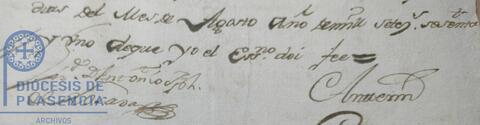 dias del Mes de Agosto Año de mill setez.s sesenta
y uno de que yo el Ess.no doi fee =
D.n Antonio Jph.
DIOCESIS DE
PLASENCIA
ARCHIVOS